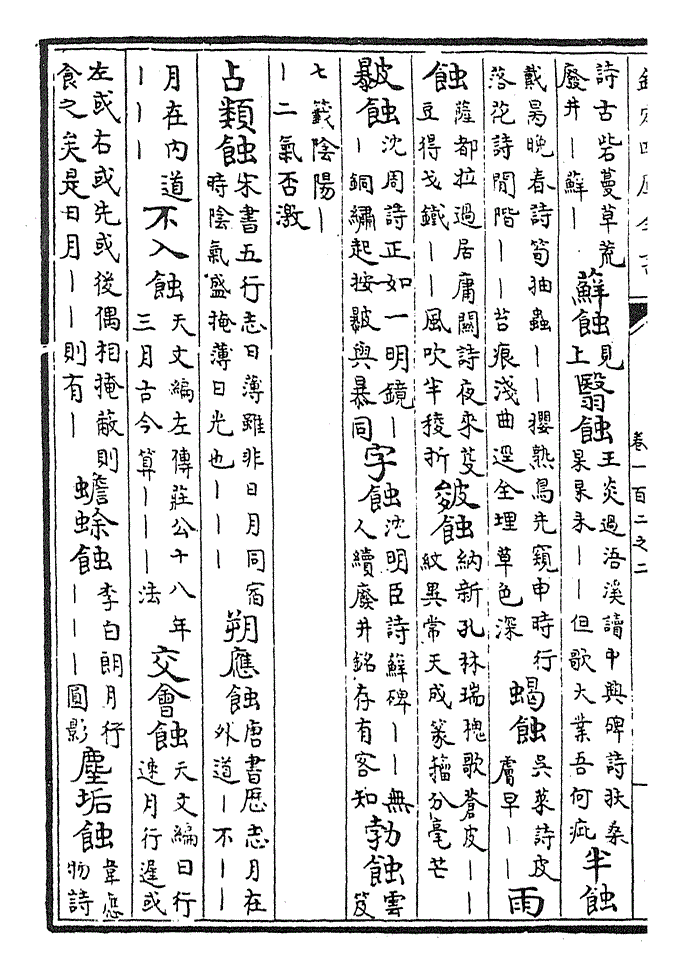 欽定四庫全書
卷一百二之二
詩古砦蔓草荒
廢井丨蘚丨
蘚蝕
見
上
翳蝕
王炎過浯溪讀中興碑詩扶桑
杲杲未丨丨但歌大業吾何疵
半蝕
戴昺晚春詩筍抽蟲丨丨櫻熟鳥先窺申時行
落花詩閒階丨丨苔痕淺曲逕全埋草色深
蝎蝕
吳萊詩皮
膚早丨丨
雨
蝕
薩都拉過居庸關詩夜來芟
豆得戈鐵丨丨風吹半稜折
皴蝕
納新孔林瑞槐歌蒼皮丨丨
紋異常天成篆籀分毫芒
㿺蝕
沈周詩正如一明鏡丨
丨銅繡起按㿺與暴同
字蝕
沈明臣詩蘚碑丨丨無
人續廢井銘存有客知
勃蝕
雲
笈
七籤陰陽丨
丨二氣否激
占類蝕
宋書五行志曰薄雖非日月同宿
時陰氣盛掩薄日光也丨丨丨
朔應蝕
唐書歷志月在
外道丨不丨丨
月在内道
丨丨丨
不入蝕
天文編左傳莊公十八年
三月古今算丨丨丨法
交會蝕
天文編日行
速月行遲或
左或右或先或後偶相掩蔽則
食之矣是日月丨丨則有丨
蟾蜍蝕
李白朗月行
丨丨丨圓影
塵垢蝕
韋應
物詩